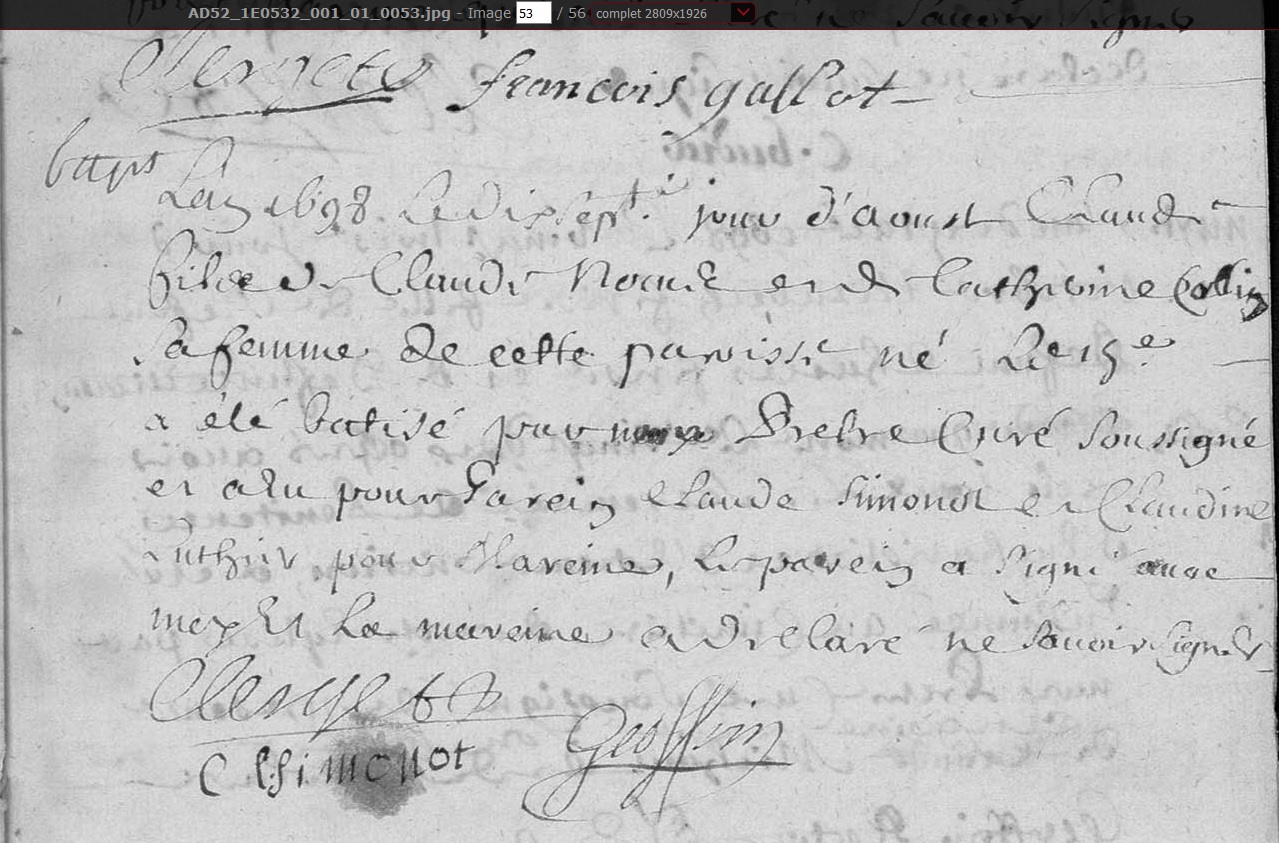 AD52_1E0532_001_01_0053.jpg - Image 53 / 56 complet 2809x1926
ne savoir signé
Clerget françois gallot
bapt
Lan 1698 Le dix sept.e jour d'aoust Claude
fils de Claude et de Catherine Collin
sa femme de cette paroisse né Le 15e
a été batisé par moy Prebre Curé soussigné
et a eu pour Parein Claude Simonot et Claudine
pour Mareine, Le parein a signé avec
moy Et La mareine a declaré ne savoir signer
Clerget
Geoffrin
C Simonot